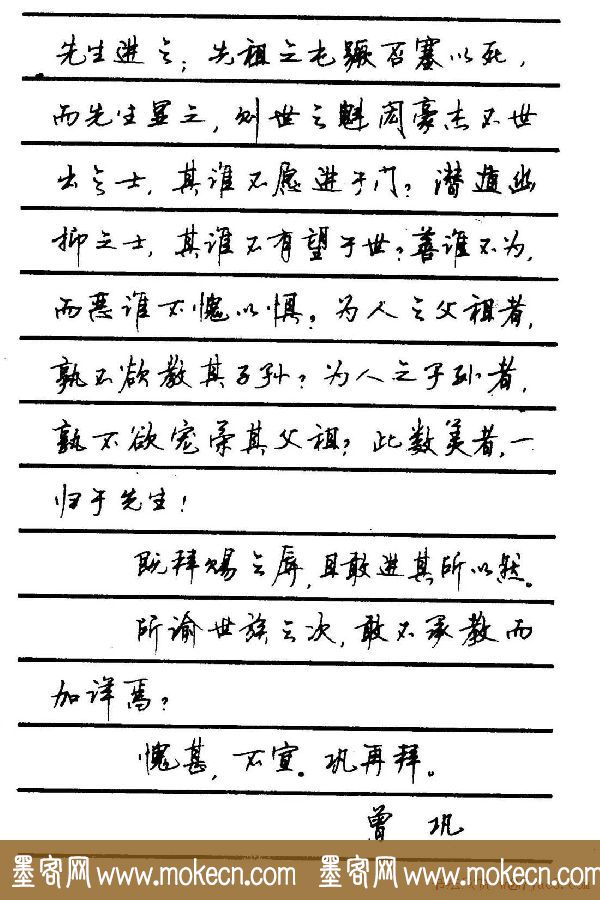 先生进之；先祖之屯蹶否塞以死，
而先生显之，则世之魁闳豪杰不世
出之士，其谁不愿进于门？潜遁幽
抑之士，其谁不有望于世？善谁不为，
而恶谁不愧以惧？为人之父祖者，
孰不欲教其子孙？为人之子孙者，
孰不欲宠荣其父祖？此数美者，一
归于先生！
既拜赐之辱，且敢进其所以然。
所谕世族之次，敢不承教而
加详焉？
愧甚，不宣。巩再拜。
曾 巩
墨客网 www.mokecn.com 墨客网 www.mokecn.com